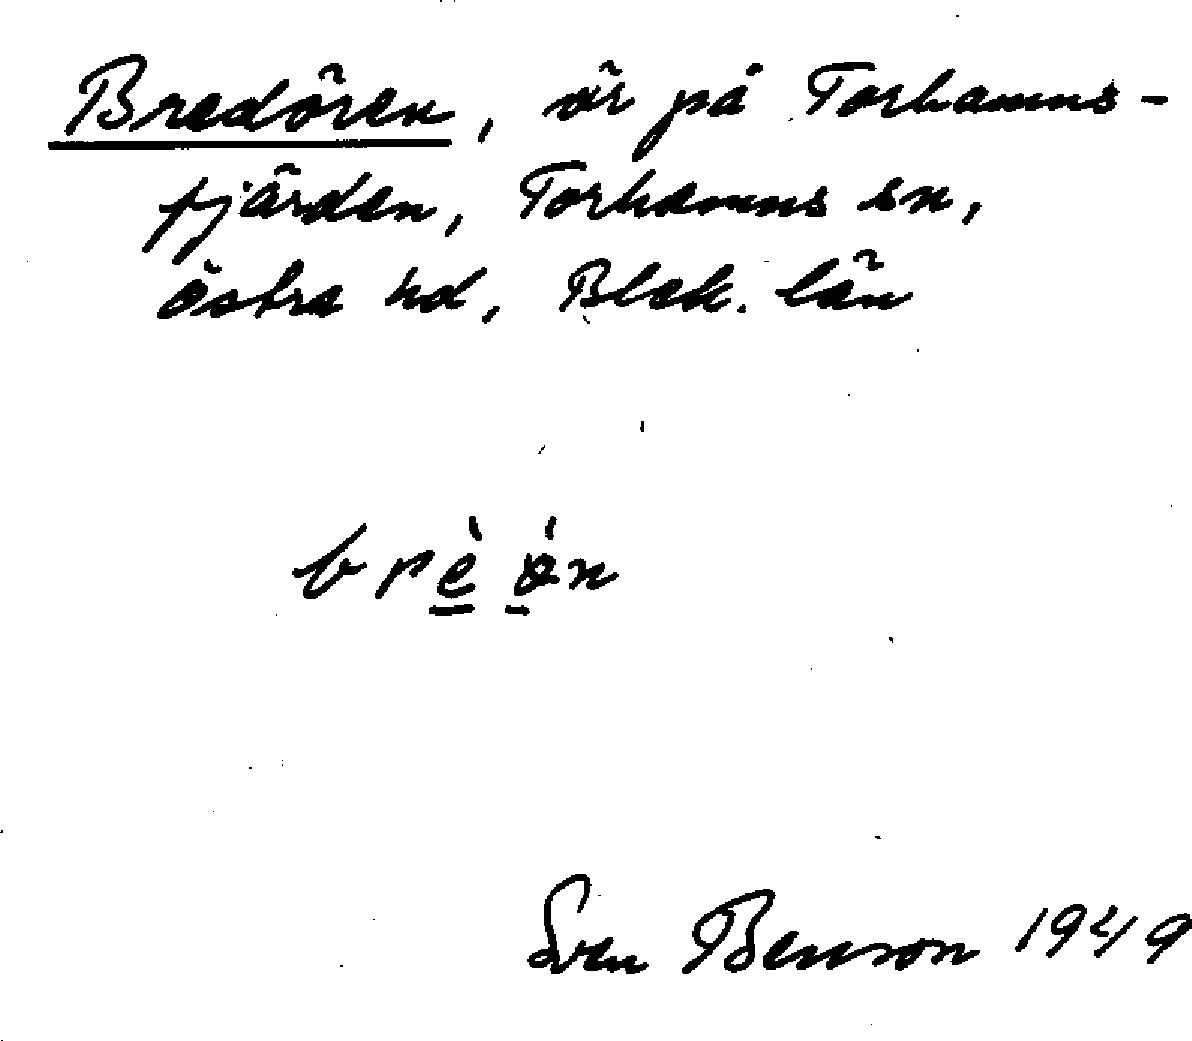 Bredören, ör på Torhamns-
fjärden, Torhamns sn,
östra hd, Blek. län
brè ǿn
Sven Benson 1949